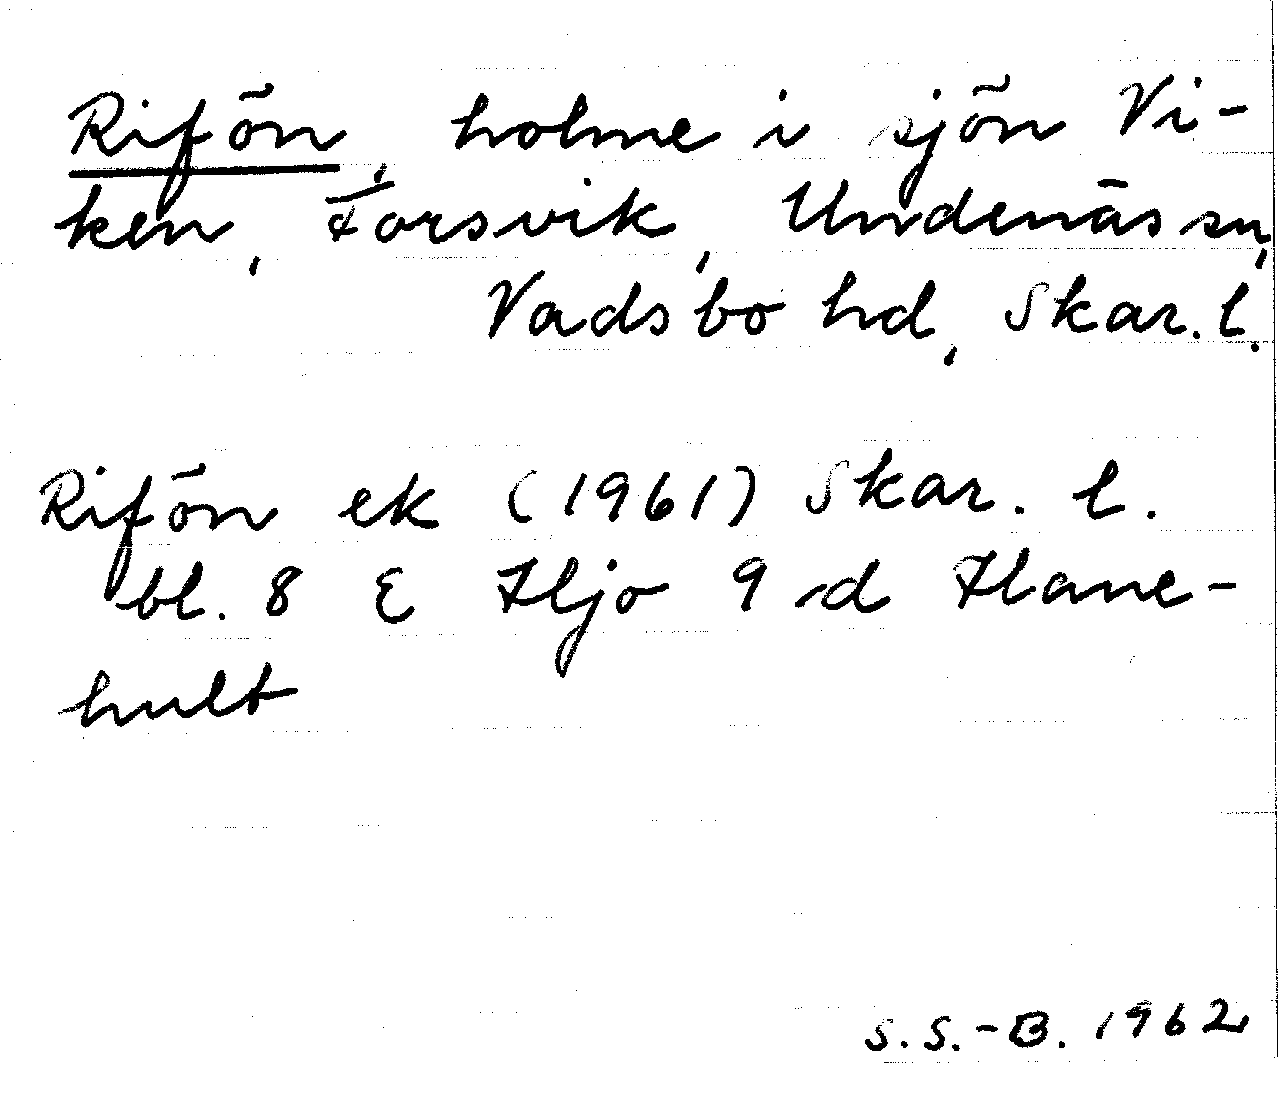 Rifön, holme i sjön Vi-
ken, Forsvik, Undenäs sn,
Vadsbo hd, Skar. l.
Rifön ek (1961) Skar. l.
bl. 8 E Hjo 9 d Hane-
hult
S. S.-B. 1962